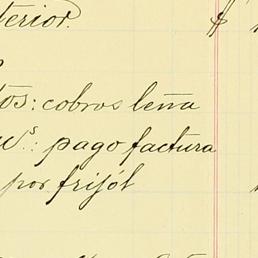 terior. $
tos: cobros leña
s.: pago factura
por frijól